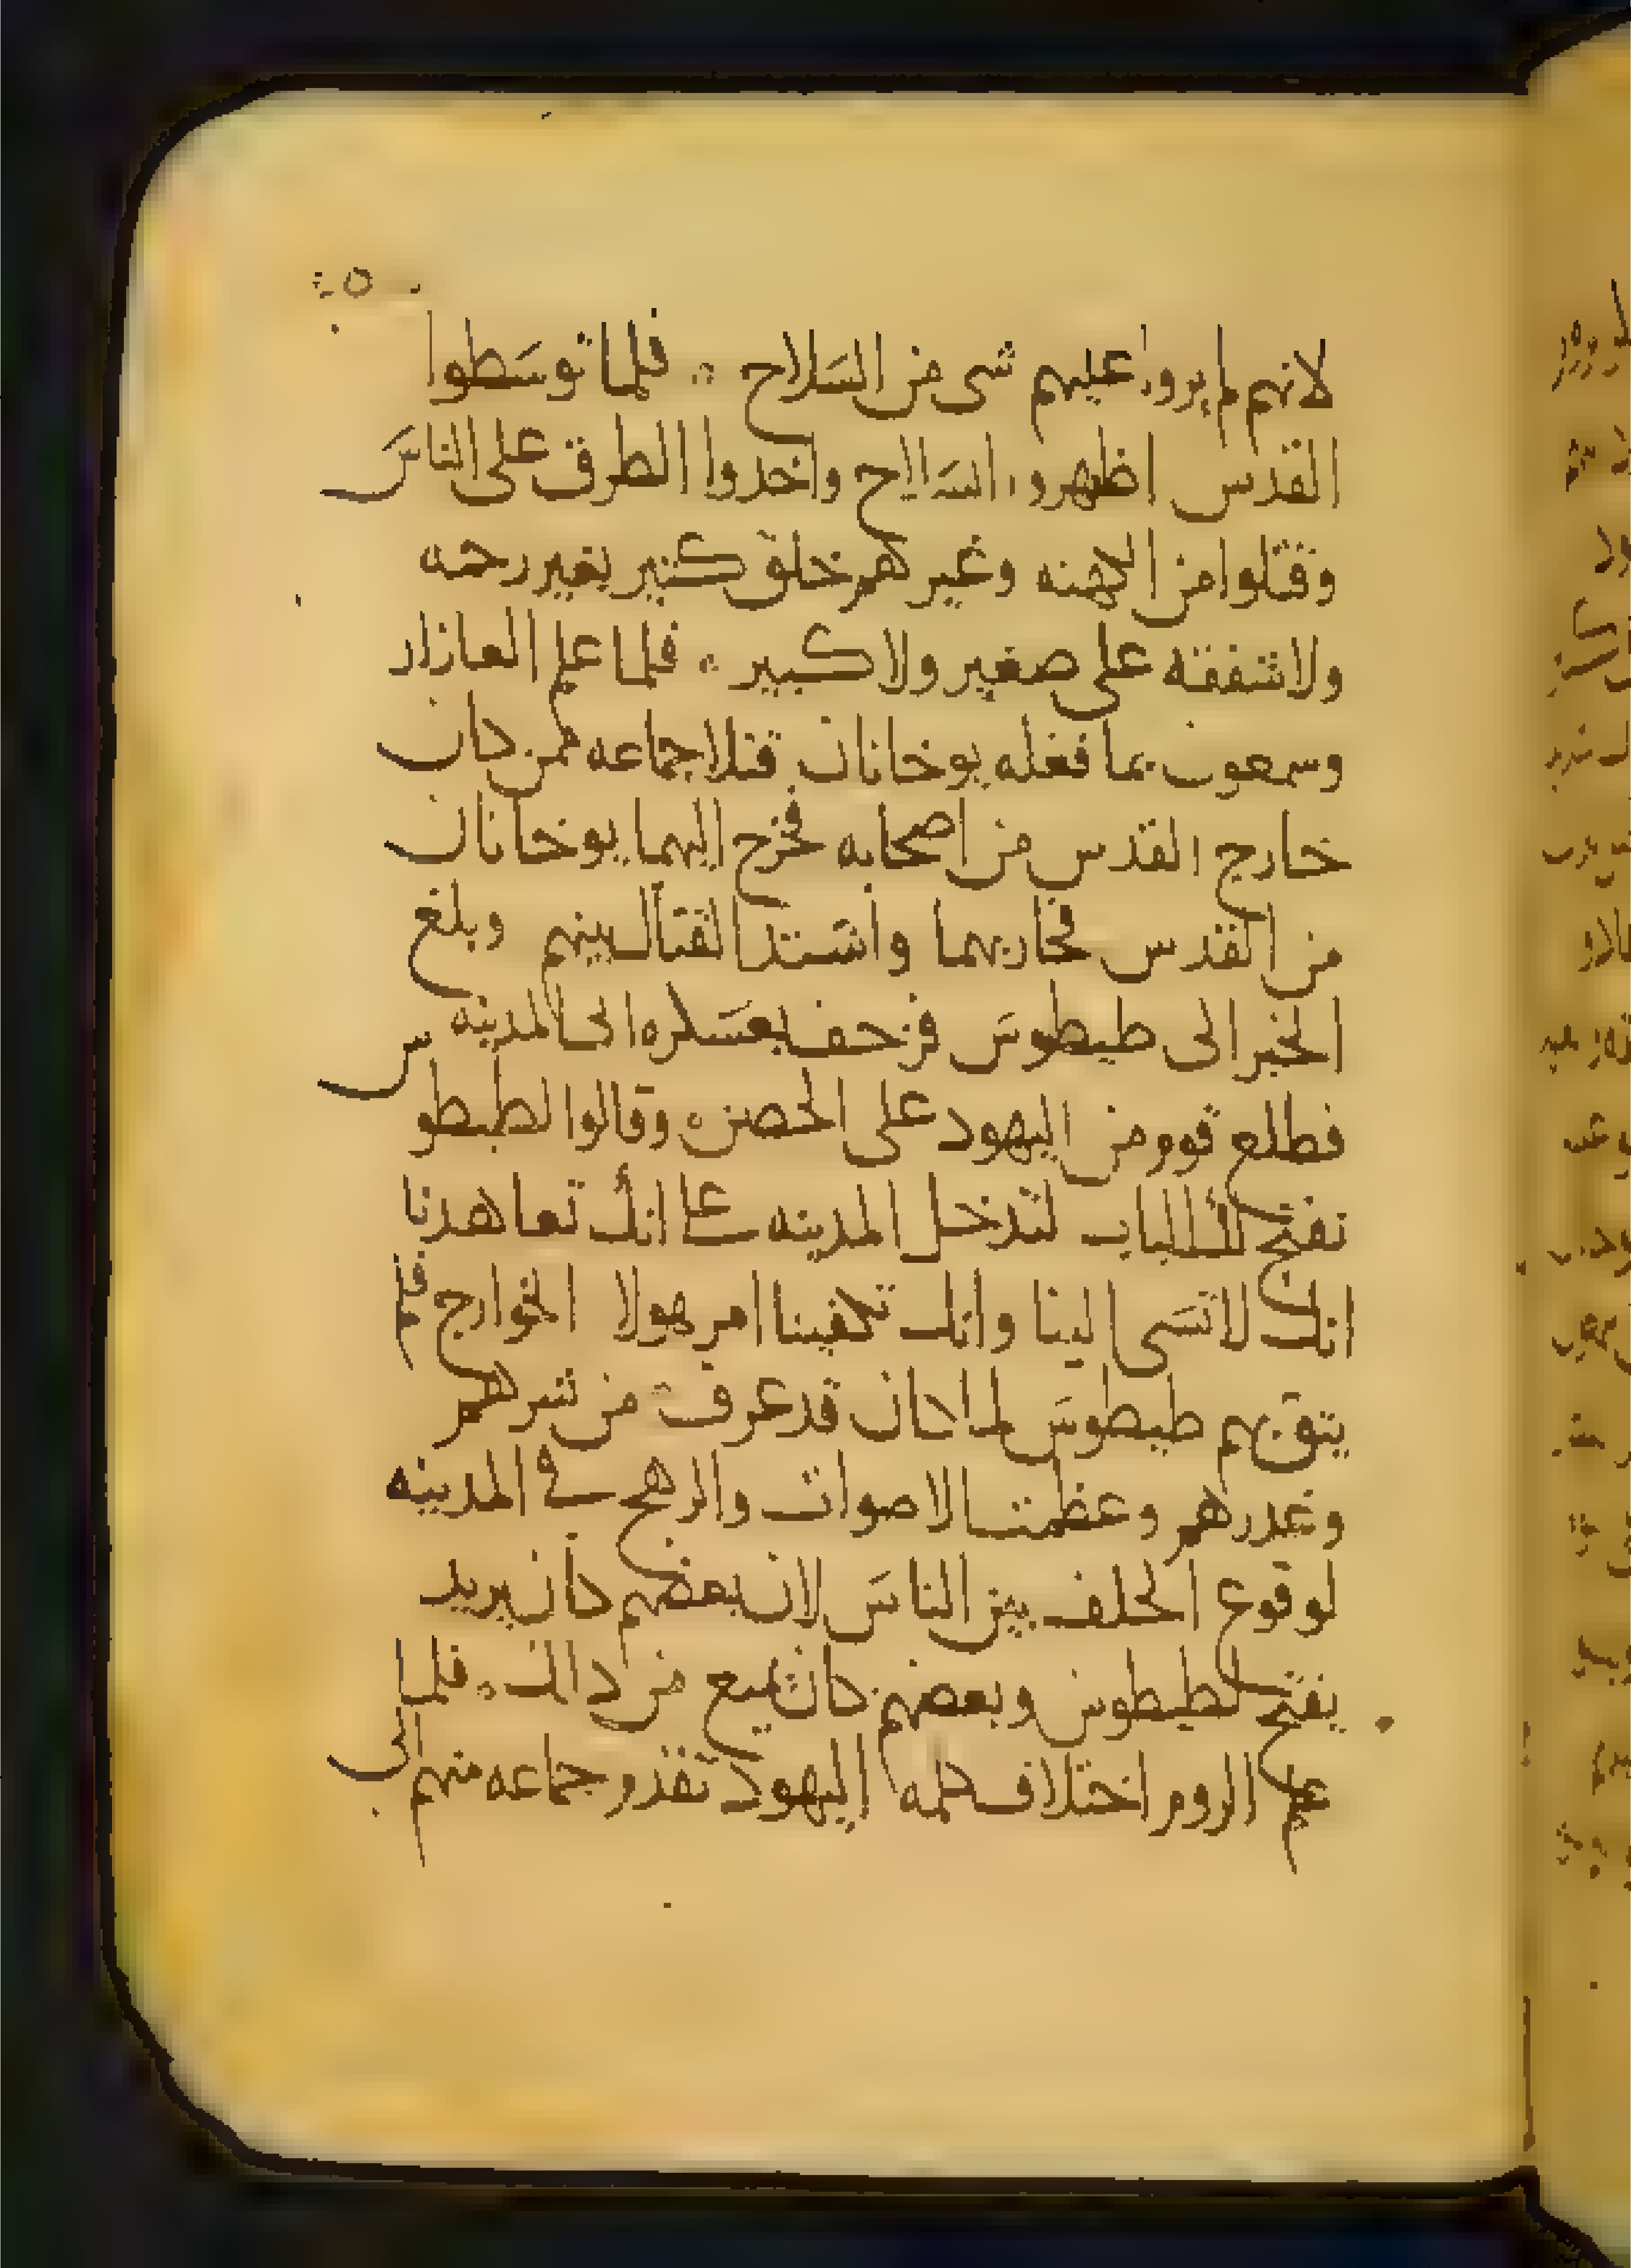 لانهم لم يروا عليهم شى من السلاح ؞ فلما توسطوا
القدس اظهروا السلاح واخدوا الطرق على الناس
وقتلوا من الكهنه وغيرهم خلق كثير بغير رحمه
ولا شفقه على صغير ولا كبير ؞ فلما علم العازار
وسمعون بما فعله يوخانان قتلا جماعه ممن كان
خارج القدس من اصحابه فخرج اليهما يوخانان
من القدس فحاربهما واشتد القتال بينهم وبلغ
الخبر الى طيطوس فزحف بعسكره الى المدينه
فطلع قوم من اليهود على الحصن ؞ وقالوا لطيطوس
نفتح لك الباب لتدخل المدينه على انك تعاهدنا
انك لا تسى الينا وانك تكفينا امر هولا الخوارج فلم
يثق بهم طيطوس لما كان قد عرف من شرهم
وغدرهم وعظمت الاصوات والرهج فى المدينه
لوقوع الخلف بين الناس لان بعضهم كان يريد
يفتح لطيطوس وبعضهم كان يمنع من دالك ؞ فلما
علم الروم اختلاف كلمه اليهود تقدم جماعه منهم الى